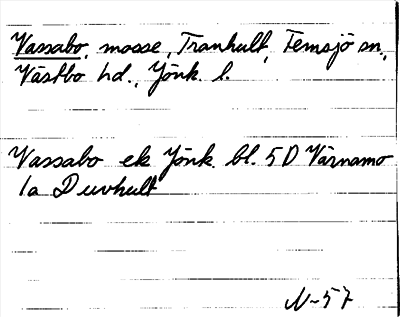 Vassabo, mosse, Tranhult, Femsjö sn,
Västbo hd., Jönk. l.
Vassabo ek Jönk. bl. 5 D Värnamo
1a Duvhult
N-57